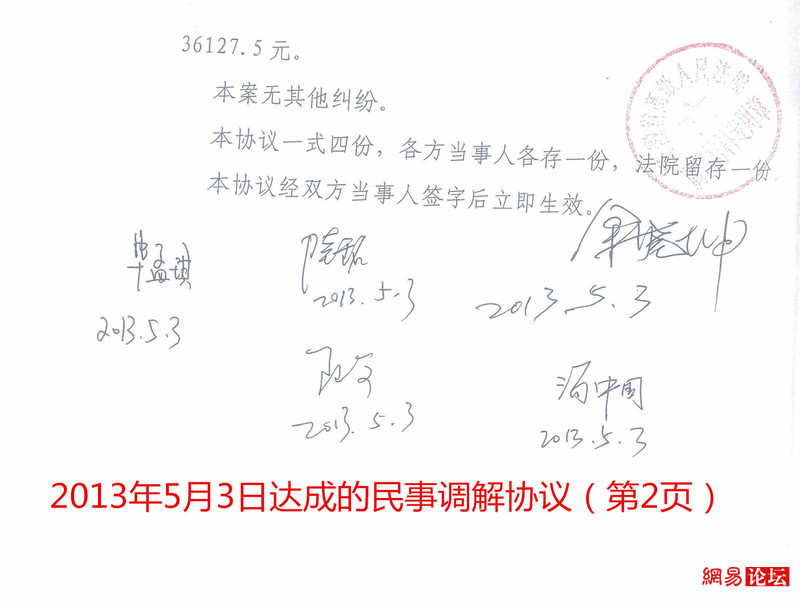 36127.5元。
本案无其他纠纷。
本协议一式四份，各方当事人各存一份，法院留存一份
本协议经双方当事人签字后立即生效。
2013.5.3
2013.5.3
2013.5.3
2013.5.3
中国
2013.5.3
2013年5月3日达成的民事调解协议（第2页）
網易论坛